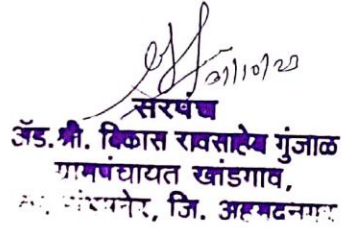 21/10/23
सरपंच
ॲड. श्री. विकास रावसाहेब गुंजाळ
ग्रामपंचायत खांडगाव,
जि. अहमदनगर